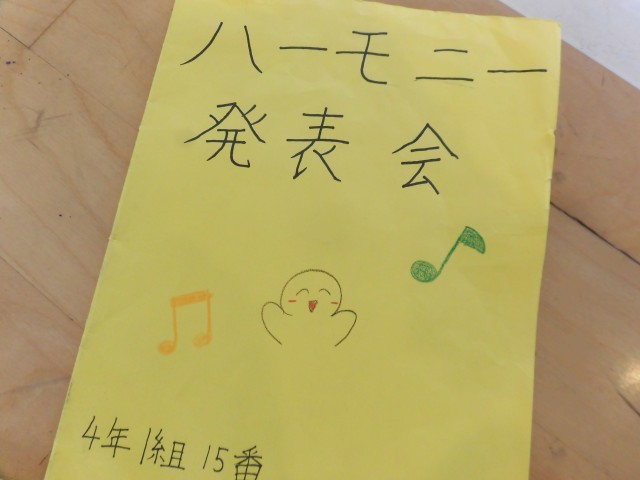 ハーモニー
発表会
4年1組 15番